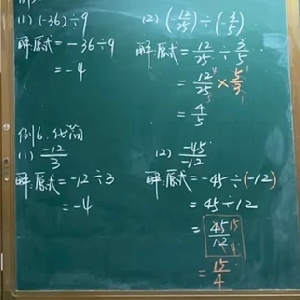 (1) (-36)÷9
解:原式=-36÷9
=-4
(2) (-12/25)÷(-3/5)
解:原式=12/25÷3/5
=12/25×5/3
=4/5
例6.化简
(1) -12/3
解:原式=-12÷3
=-4
(2) -45/-12
解:原式=-45÷(-12)
=45÷12
=45/12 15 4
=15/4